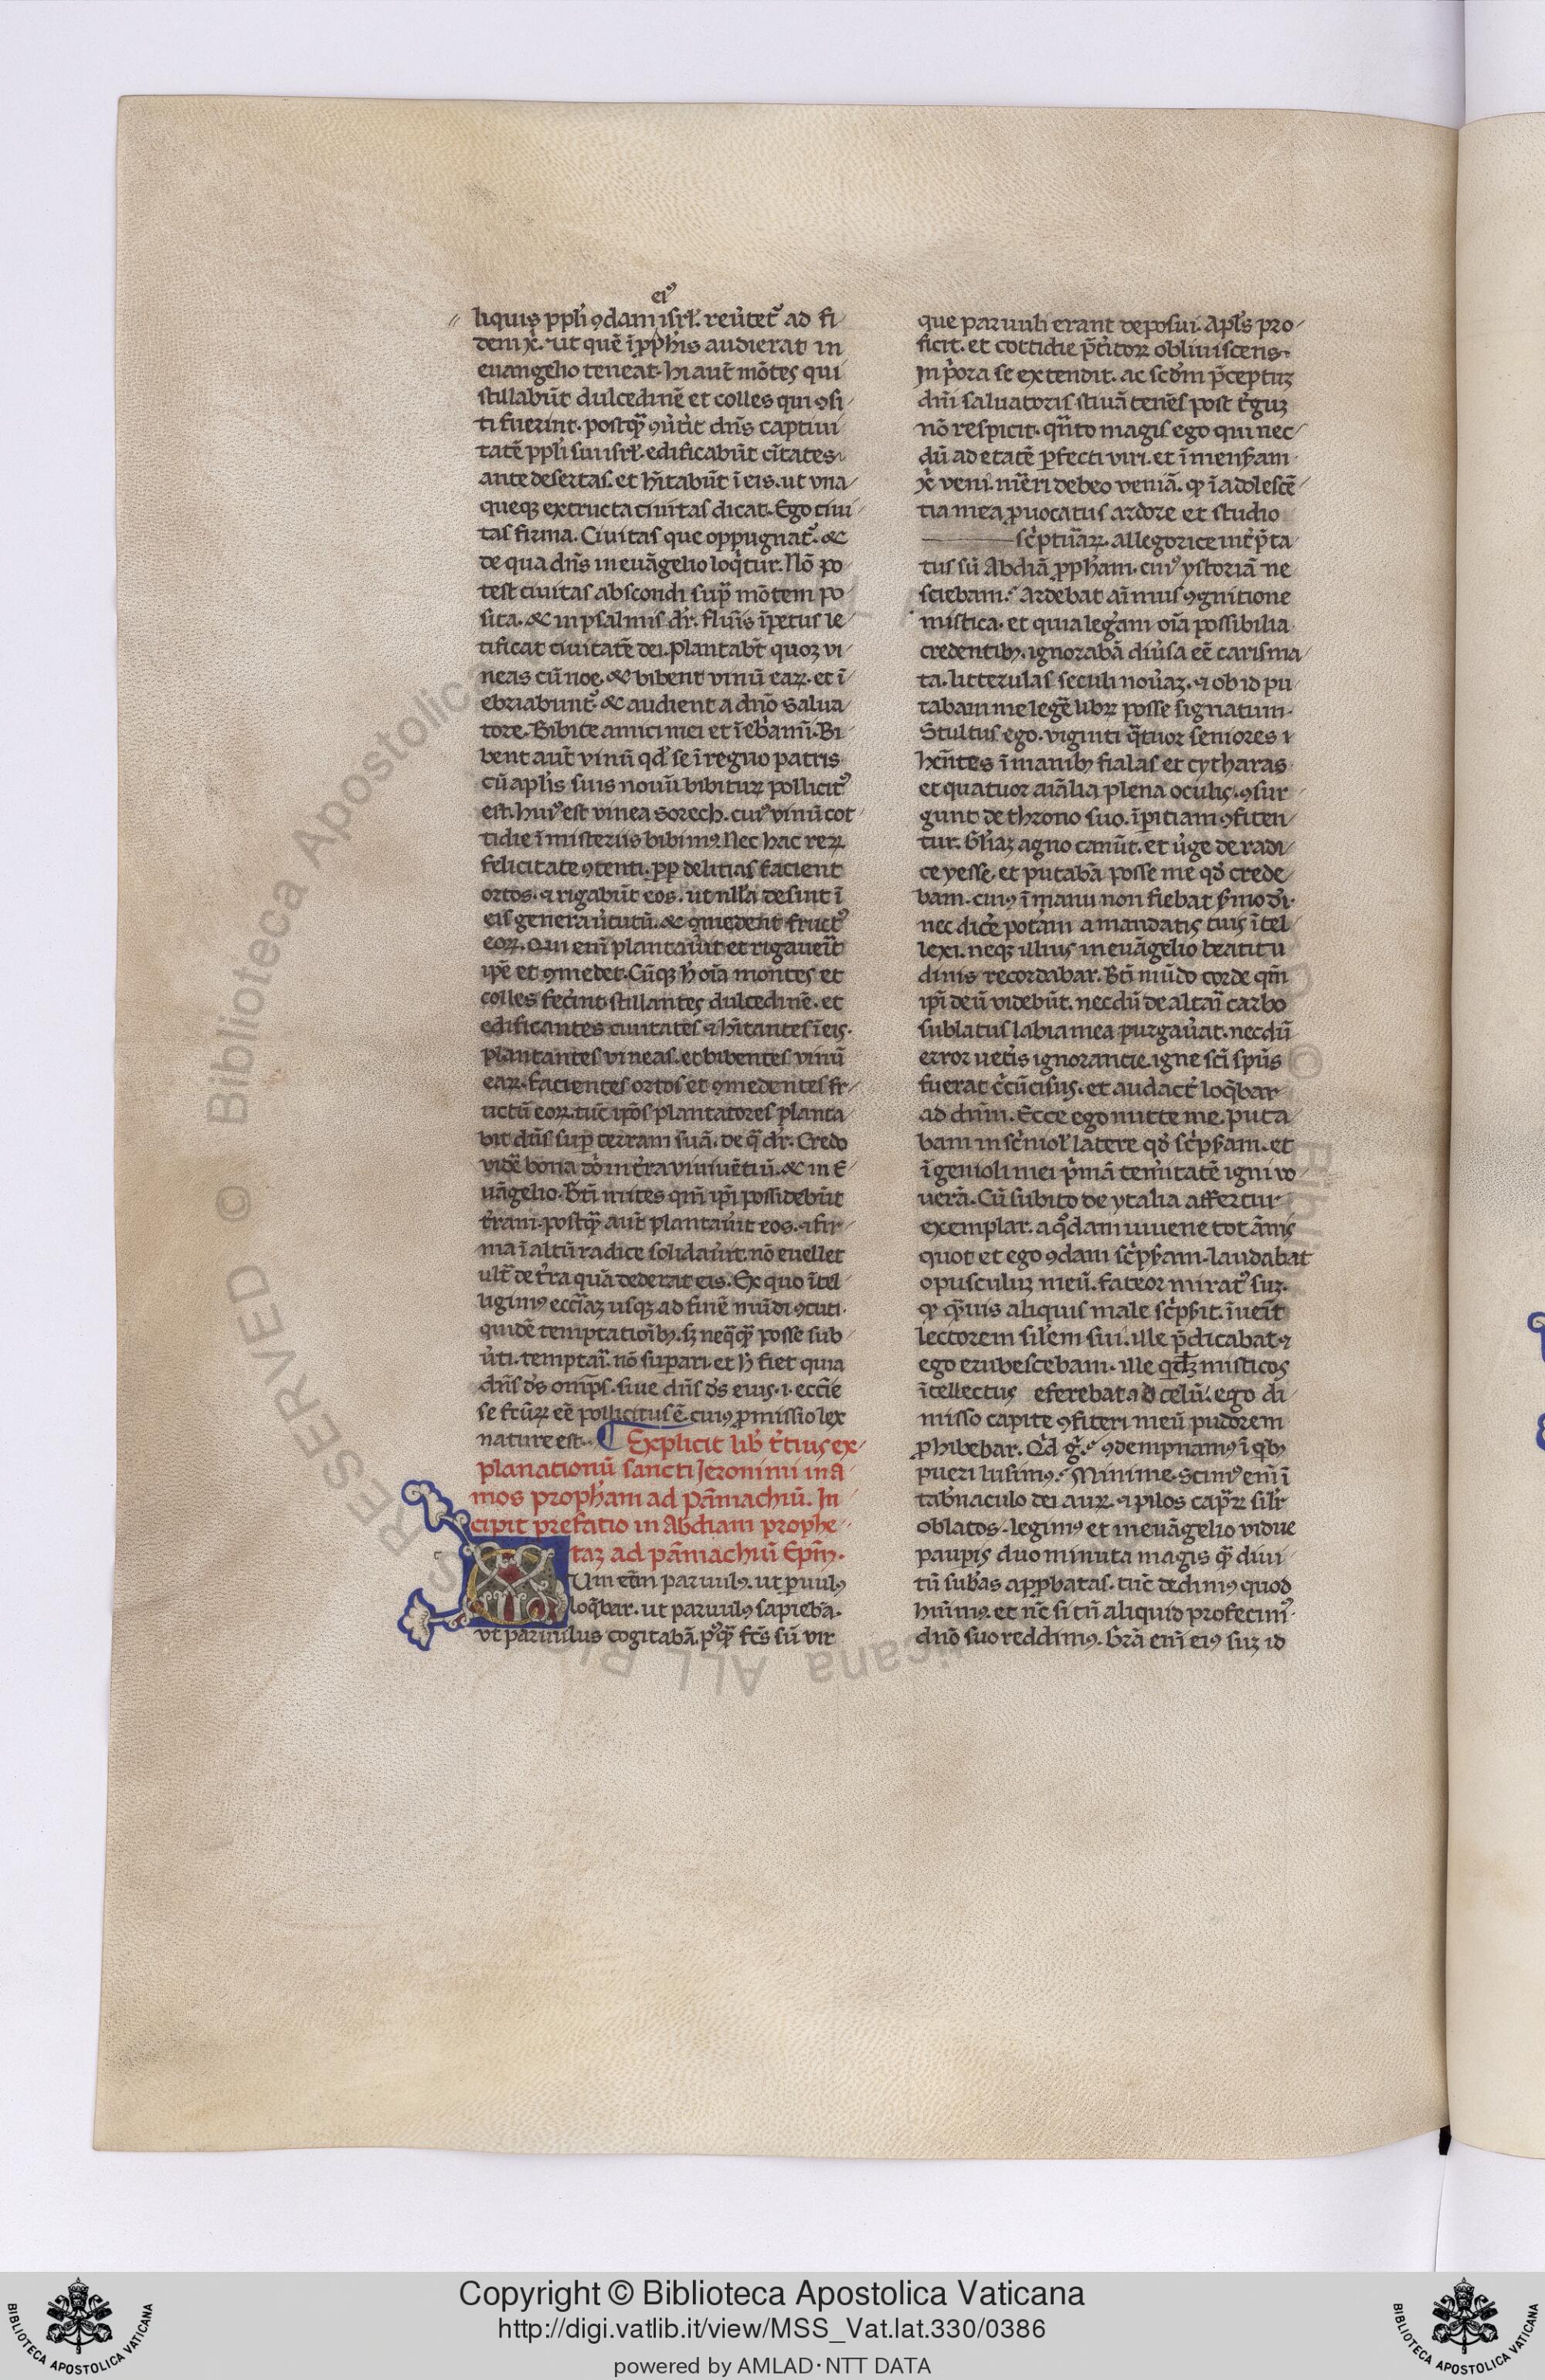 eiꝰ
liquis ppl'i ꝯdam isrł. reu̾tet᷑ ad fi
dem xp̄i. ut quē ī pp̄his audierat in
euangelio teneat. hi aut̄ mōtes qui
stillabūt dulcedinē et colles qui ꝯsi
ti fuerint. postq̄ꝫ ꝯu̾tit dn̄s captiui
tatē ppl'i sui isrł. edificabūt ciūtates
ante desertas. et hītabūt ī eis. ut vna
queqꝫ extructa ciuitas dicat. Ego ciui
tas firma. Ciuitas que oppugnat᷑. &
de qua dn̄s in euāgelio loq̄tur. Nō po
test ciuitas abscondi sup̄ mōtem po
sita. & in psalmis dr̄. fluīs īpetus le
tificat ciuitatē dei. plantabt̄ quoqꝫ vi
neas cū noe. & bibent vinū eaꝝ. et ī
ebriabunt᷑. & audient a dn̄o salua
tore. Bibite amici mei et īebᷓami. Bi
bent aut̄ vinū qd̄ se ī regno patris
cū apl'is suis nouū bibituꝝ pollicitꝰ
est. huiꝰ est vinea sorech. cuiꝰ vinū cot
tidie ī misteriis bibimꝰ. Nec hac reꝝ
felicitate ꝯtenti. pp̄ delitias facient
ortos. ⁊ rigabūt eos. ut nłła desint ī
eis genera u̾tutū. & ꝯmedent fructꝰ
eoꝝ. Qui enī plantau̾it et rigauerīt
ip̄e et ꝯmedet. Cūqꝫ h̄ oīa montes et
colles fecīnt stillantes dulcedinē. et
edificantes ciuitates ⁊ hītantes ī eis.
plantantes vineas. et bibentes vinū
eaꝝ. facientes ortos et ꝯmedentes fr
uctū eoꝝ. tūc ip̄os plantatores planta
bit dn̄s sup̄ terram suā. de q̄ dr̄. Credo
vidē bona dn̄i in t̄ra viuiuētiū. & in e
uāgelio. Bt̄i mites qm̄ ip̄i possidebūt
t̄ram. postq̄ꝫ aut̄ plantau̾it eos. ⁊ fir
ma ī altū radice solidau̾it. nō euellet
ult̄ de t̄ra quā dederat eis. Ex quo ītel
ligimꝰ ecc̄iaꝫ usqꝫ ad finē mūdi ꝯcuti
quidē temptatiōibꝫ. sꝫ neq̄q̄ꝫ posse sub
u̾ti. temptari. nō supari. et h̄ fiet quia
dn̄s ds̄ om̄ps. siue dn̄s ds̄ eius. i. ecc̄ie
se fcūꝝ eē pollicitus ē. cuiꝰ ꝓmissio lex
nature est. ¶ Explicit lib̄ t̄tius ex
planationū sancti Jeronimi in a
mos propham ad pāmachiū. In
cipit prefatio in Abdiam prophe
taꝫ ad pāmachiū Epm̄.
Um eēm paruulꝰ. ut ꝑuulꝰ
loq̄bar. ut paruulꝰ sapiebā.
vt paruulus cogitabā. pꝰq̄ꝫ fcs̄ sū vir
que paruuli erant deposui. Apl's pro
ficit. et cottidie p̄t̄itoꝝ obliuiscens.
In p̄ora se extendit. ac scdm̄ p̄ceptuꝫ
dn̄i saluatoris stiuā tenēs post t̄guꝫ
nō respicit. qn̄to magis ego qui nec
dū ad etatē ꝑfecti viri. et ī mensᷓam
xp̄i veni. m̄eri debeo veniā. ꝙ ī adolescē
tia mea ꝓuocatus ardore et studio
sc̄ptuᷓaꝝ. allegorice int̄p̄ta
tus sū Abdiā ꝓpham. cuiꝰ ystoriā ne
sciebam. Ardebat aīmus ꝯgnitione
mistica. et quia legᷓam oīa possibilia
credentibꝫ. ignorabā diu̾sa eē carisma
ta. litterulas seculi nou̾aꝫ. ⁊ ob id pu
tabam me legē librꝫ posse signatum.
Stultus ego. viginti q̄tuor seniores
hēn̄tes ī manibꝫ fialas et cytharas
et quatuor aīalia plena oculis. ꝯsur
gunt de throno suo. īpitiam ꝯfiten
tur. Gl'iaꝫ agno canūt. et u̾ge de radi
ce yesse. et putabā posse me qd̄ crede
bam. cuiꝰ ī manu non fiebat s̄mo dī.
nec dicē potᷓam a mandatis tuis ītel
lexi. neqꝫ illius in euāgelio beatitu
dinis recordabar. Bt̄i mūdo corde qm̄
ip̄i deū videbūt. necdū de altari carbo
sublatus labia mea purgau̾at. necdū
error uet̄is ignorantie. igne scī sp̄us
fuerat c̄cūcisus. et audact̄ loq̄bar
ad dn̄m. Ecce ego mitte me. puta
bam in sc̄niol' latere qd̄ sc̄psᷓam. et
ī genioli mei p̄mā temītatē igni vo
uerā. Cū subito de ytalia affertur
exemplar. a qᷓodam iuuene tot ānis
quot et ego ꝯdam sc̄psᷓam. laudabat
opusculuꝫ meū. fateor miratꝰ suꝫ.
ꝙ q̄ꝫuis aliquis male sc̄psit. īueīt
lectorem sil'em sui. ille p̄dicabat ⁊
ego erubescebam. ille q̄dꝫ misticos
ītellectus eferebat. ad celū. ego di
misso capite ꝯfiteri meū pudorem
ꝓhibebar. Qd̄ g̊. ꝯdempnamꝰ ī qᷓbꝫ
pueri lusimꝰ. Minime. Scimꝰ enī ī
tab̄naculo dei auꝝ. ⁊ pilos cap̄ꝝ sil'r
oblatos. legimꝰ et in euāgelio vidue
paupis duo minuta magis q̄ꝫ diui
tū subᷓas apꝓbatas. tūc dedimꝰ quod
hūimꝰ. et nc̄ si tn̄ aliquid profecimꝰ.
dn̄o suo reddimꝰ. Grā enī eiꝰ suꝫ id
Copyright © Biblioteca Apostolica Vaticana
http://digi.vatlib.it/view/MSS_Vat.lat.330/0386
powered by AMLAD·NTT DATA
BIBLIOTECA APOSTOLICA VATICANA
BIBLIOTECA APOSTOLICA VATICANA